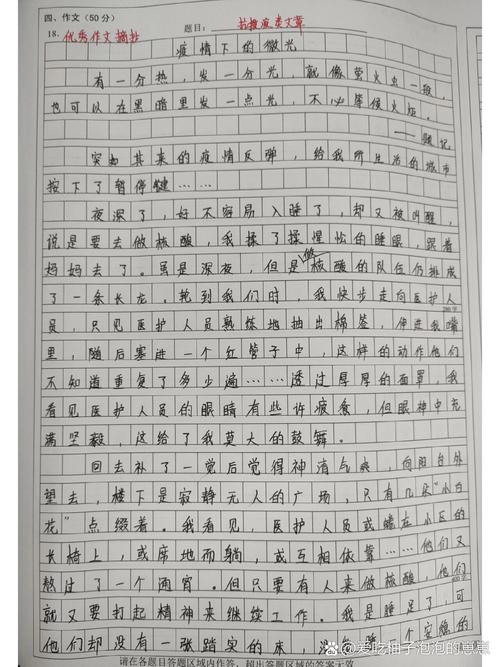 四、作文（50分）
18. 优秀作文摘抄 题目：抗疫类文章
疫情下的微光
有一分热，发一分光，就像萤火虫一般，
也可以在黑暗里发一点光，不必等候火炬。
——题记
突如其来的疫情反弹，给我所生活的城市
按下了暂停键……
夜深了，好不容易入睡了，却又被叫醒，
说是要去做核酸，我揉了揉惺忪的睡眼，跟着
妈妈去了。虽是深夜，但是做核酸的队伍仍排成
了一条长龙。轮到我们时，我快步走向医护人
员，只见医护人员熟练地抽出棉签，伸进我嘴
里，随后塞进一个红管子中，这样的动作他们
不知道重复了多少遍……透过厚厚的面罩，我
看见医护人员的眼睛有些许疲惫，但眼神中充
满坚毅，这给了我莫大的鼓舞。
回去补了一觉后觉得神清气爽，向阳台外
望去，楼下是寂静无人的广场，只有几朵“小白
花”点缀着。我看见，医护人员或瘫在小区的
长椅上，或席地而躺，或互相依靠……他们又
熬过了一个通宵。但只要有人来做核酸，他们
就又要打起精神来继续工作。我是睡足了，可
他们却没有一张踏实的床，没有睡个安稳的
请在各题目答题区域内作答，超出答题区域的答案无效
@爱吃柚子泡泡的崽崽